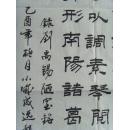 以調素琴閱
形南陽諸葛
錄劉禹錫陋室銘
乙酉年